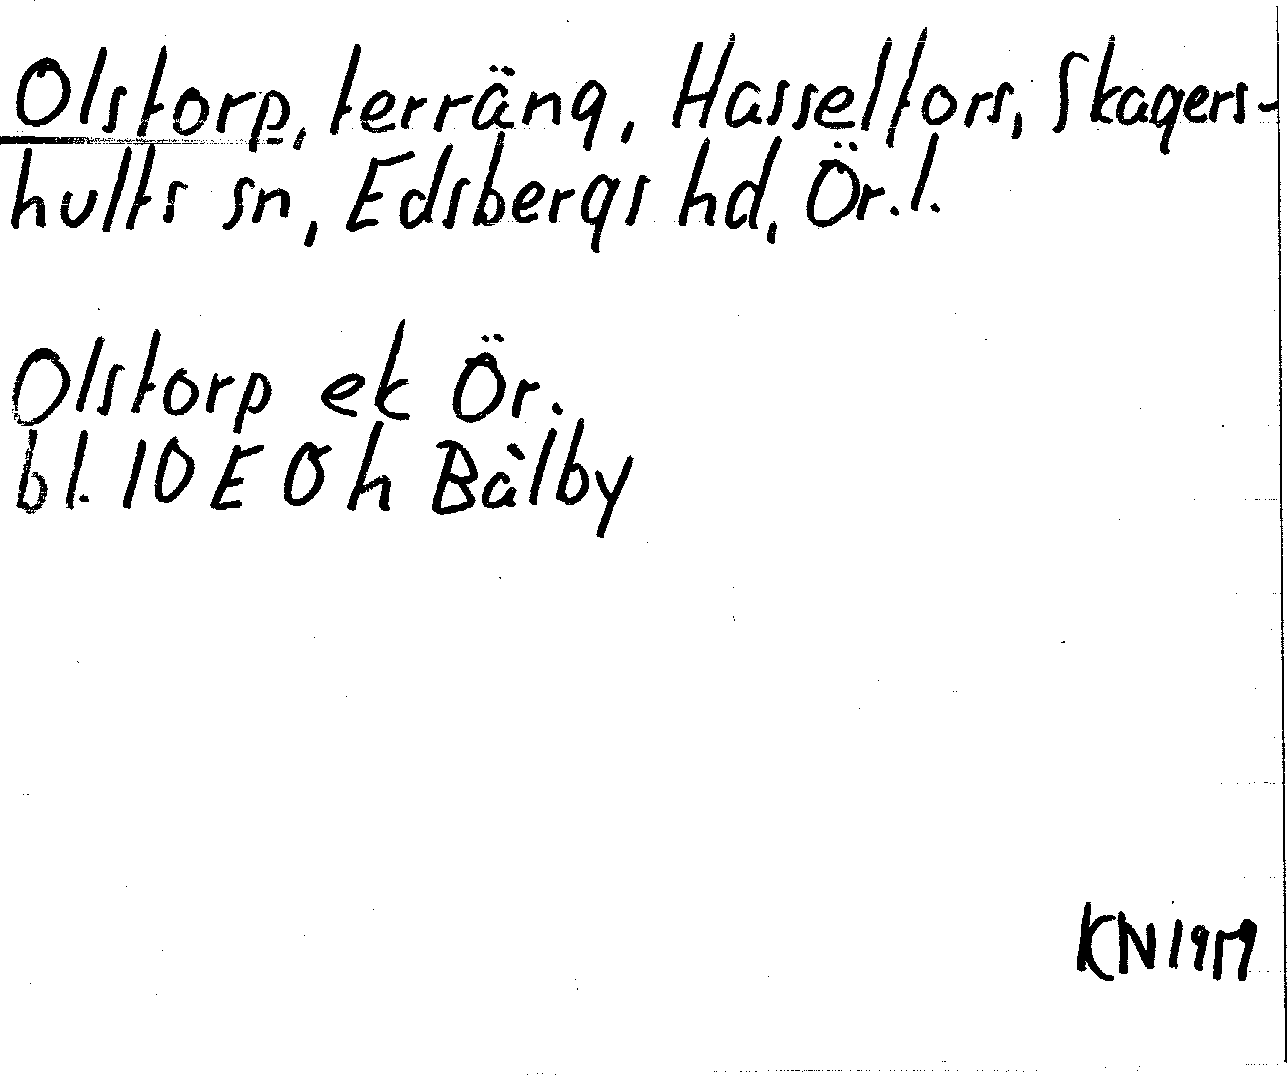 Olstorp, terräng, Hasselfors, Skagers-
hults sn, Edsbergs hd, Ör. l.
Olstorp ek Ör.
bl. 10 E 0 h Bålby
KN 1979